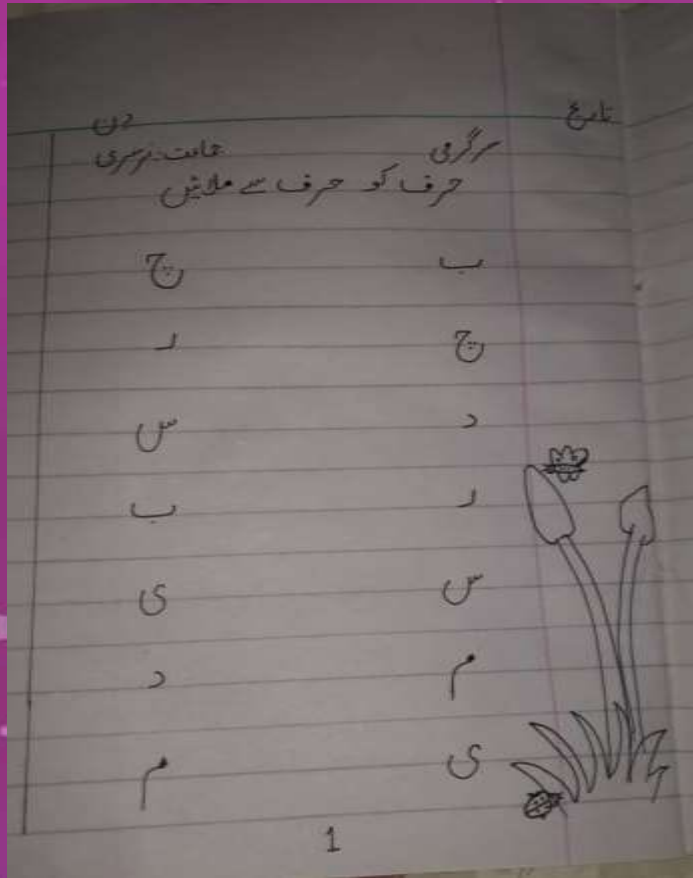 تاریخ دن
سرگرمی جماعت: نرسری
حرف کو حرف سے ملائیں
ب چ
چ ر
د س
ر ب
س ی
م د
ی م
1